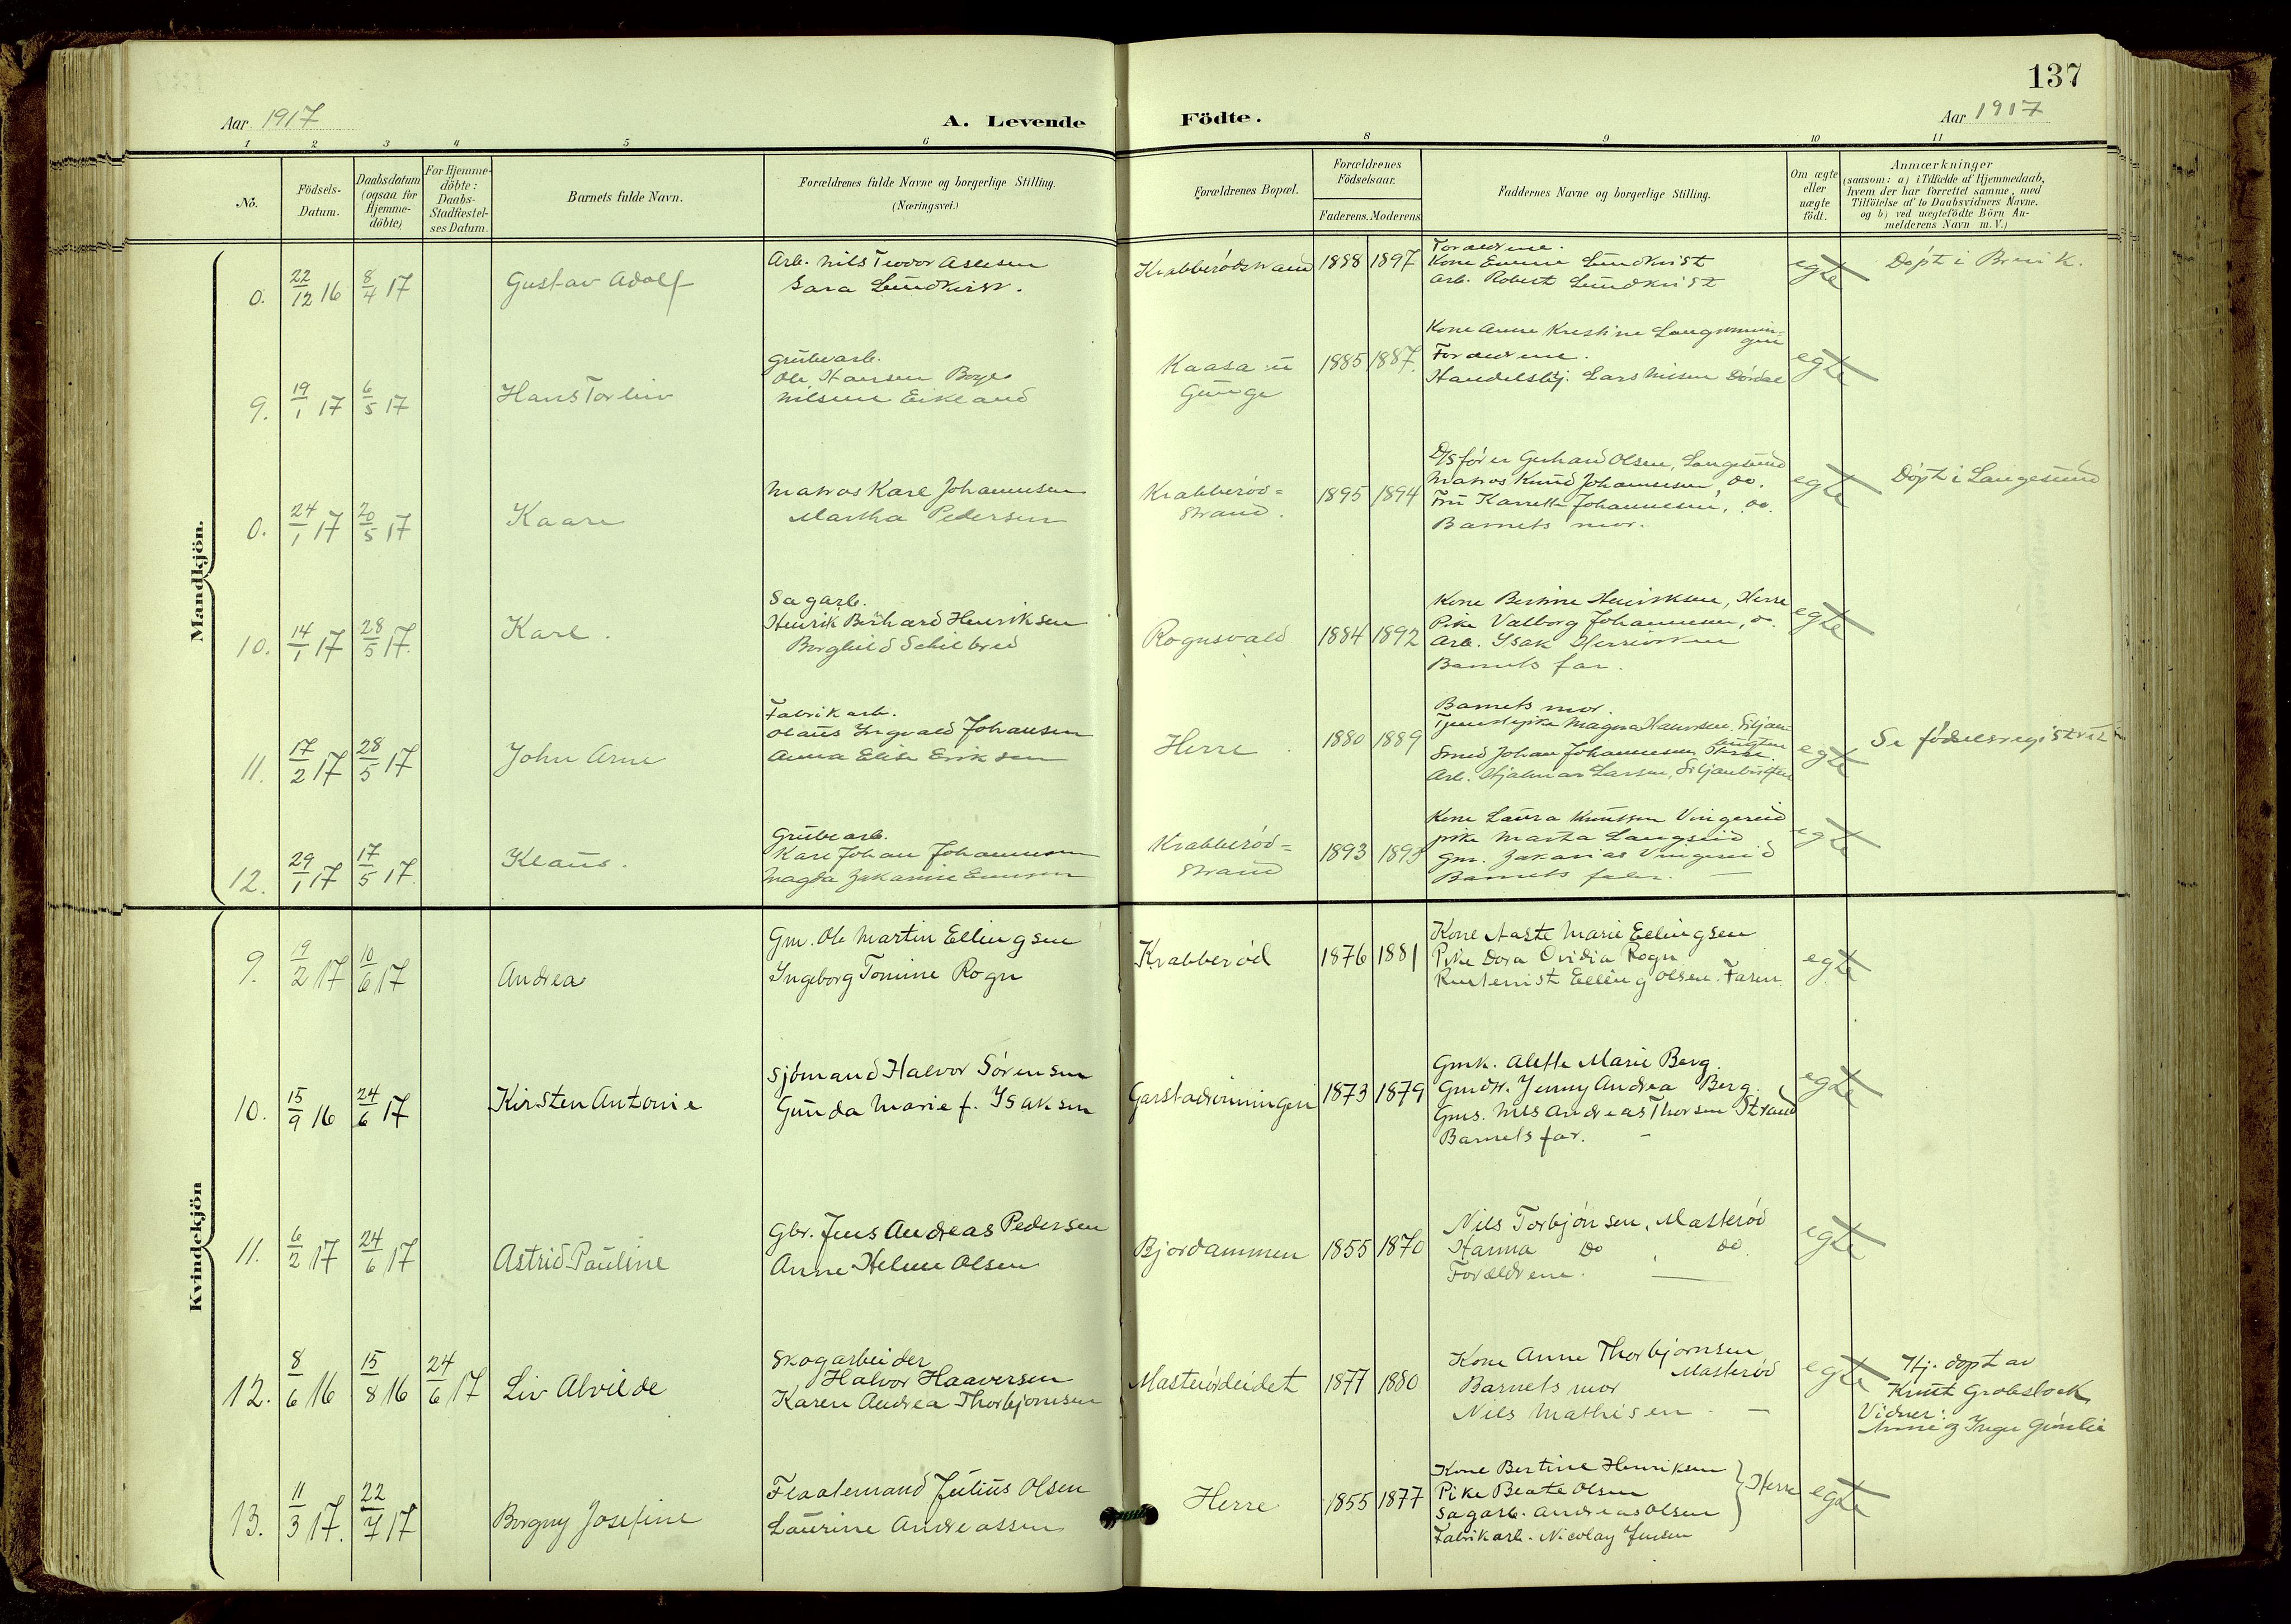 137
Aar 1917
A. Levende
Födte.
Aar 1917
1 2 3 4 5 6 8 9 10 11
No.
Födsels-
Datum.
Daabsdatum
(ogsaa for
Hjemme-
döbte)
For Hjemme-
döbte:
Daabs-
Stadfæstel-
ses Datum.
Barnets fulde Navn.
Forældrenes fulde Navne og borgerlige Stilling.
(Næringsvei.)
Forældrenes Bopæl.
Forældrenes
Födselsaar.
Faderens. Moderens
Faddernes Navne og borgerlige Stilling.
Om ægte
eller
uægte
födt.
Anmærkninger
(saasom: a) i Tilfælde af Hjemmedaab,
hvem der har forrettet samme, med
Tilföielse af to Daabsvidners Navne.
og b) ved uægtefödte Börn An-
melderens Navn m. V.)
Mandkjön.
0. 22/12 16 8/4 17 Gustav Adolf
Arb. Nils Teodor Aslesen
Sara Lundkvist.
Krabberødstrand 1888 1897
Forældrene.
Kone Emma Lundkvist
Arb. Robert Lundkvist
egte
Döpt i Brevik.
9. 19/1 17 6/5 17 Hans Torleiv
Grubearb.
Ole Hansen
Nilsen Eikland
Kaasa u
Gunge
1885 1887.
Kone Anne Kristine
Forældrene.
Handelsbj. Lars Nilsen Dórdal
egte
0. 24/1 17 20/5 17 Kaare
Matros Karl Johannesen
Martha Pedersen
Krabberød=
strand.
1895 1894
D/S förer Gerhard Olsen, Langesund
Matros Knud Johannesen, do.
Fru Johannesen, do.
Barnets mor.
egte
Döpt i Langesund
10. 14/1 17 28/5 17. Karl.
Sagarb.
Henrik Henriksen
Borghild Schilbred
Rognsvald 1884 1892
Kone Bertine Henriksen, Herre
Pike Valborg Johannesen, do.
Arb. Isak Henriksen
Barnets far.
egte
11. 17/2 17 28/5 17 John Arne
Fabrikarb.
Olaus Ingvald Johansen
Anna Elise Eriksen
Herre. 1880 1889
Barnets mor.
Tjenestpike Magna Hansen, Siljan
Smed Johan Johannesen, Herre.
Arb. Hjalmar Larsen,
egte
Se födselsregistret
12. 29/1 17 17/5 17. Klaus.
Grubearb.
Karl Johan Johannesen
Magda
Krabberød=
strand
1893 1893
Kone Laura Knutsen Vingereid
pike Marta Langseid
Gm. Zakarias Vingereid
Barnets fader. —
egte
Kvindekjön
9. 19/2 17 10/6 17 Andrea
Gm. Ole Martin Ellingsen
Ingeborg Tomine Rogn
Krabberød 1876 1881
Kone Aaste Marie Ellingsen
Pike Dora Ovidia Rogn
Elling Olsen. Faren.
egte
10. 15/9 16 24/6 17 Kirsten Antonie
Sjömand Halvor Sörensen
Gunda Marie f. Isaksen
1873 1879
Gmk. Alette Marie Berg.
Gmdtr. Jenny Andrea Berg.
Gms. Nils Andreas Thorsen Strand
Barnets far. —
egte
11. 6/2 17 24/6 17 Astrid Pauline
Gbr. Jens Andreas Pedersen
Anne Helene Olsen
Bjordammen 1855 1870
Nils Torbjönsen, Masteröd
Hanna do , do.
Forældrene. —
egte
12. 8/6 16 15/8 16 24/6 17 Liv Alvilde
Skogarbeider
Halvor Haaversen
Karen Andrea Thorbjornsen
Masterødeidet 1877 1880
Kone Anne Thorbjornsen
Masteröd
Barnets mor
Nils Mathisen. —
egte
Hj. döpt av
Knut Grobstock
Vidner:
Anne og Inger Grönlie
13. 11/3 17. 22/7 17 Borgny Josefine
Flaatemand Julius Olsen
Laurine Andreassen
Herre 1855 1877
Kone Bertine Henriksen
Pike Beate Olsen
Sagarb. Andreas Olsen
Fabrikarb. Nicolay Jensen
Herre
egte